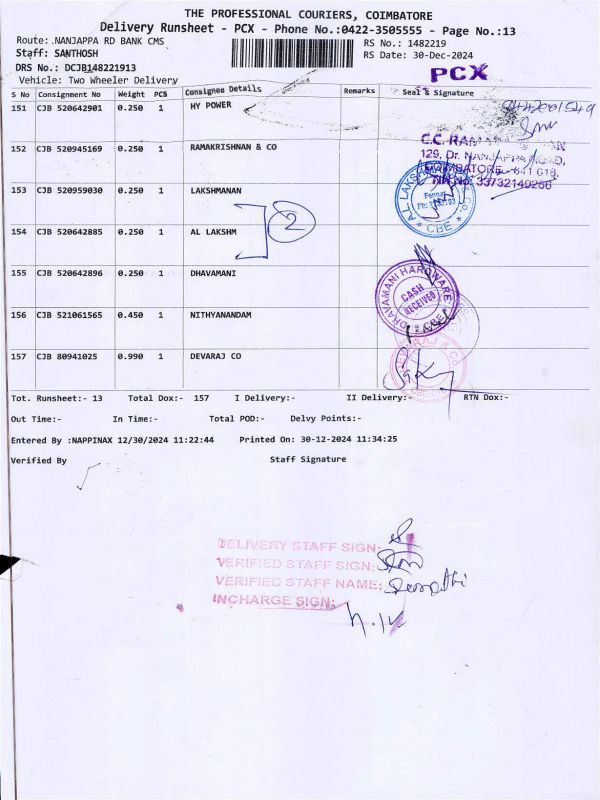 THE PROFESSIONAL COURIERS, COIMBATORE
Delivery Runsheet - PCX - Phone No.:0422-3505555 - Page No.:13
Route: NANJAPPA RD BANK CMS
RS No.: 1482219
Staff: SANTHOSH
RS Date: 30-Dec-2024
DRS No.: DCJB148221913
PCX
Vehicle: Two Wheeler Delivery
S No Consignment No Weight PCS Consignee Details Remarks Seal & Signature
151 CJB 520642901 0.250 1 HY POWER
152 CJB 520945169 0.250 1 RAMAKRISHNAN & CO
129, Dr. NANJAPPA ROAD,
153 CJB 520959030 0.250 1 LAKSHMANAN
2
CBE
154 CJB 520642885 0.250 1 AL LAKSHM
155 CJB 520642896 0.250 1 DHAVAMANI
DHAVAMANI HARDWARE
CASH
RECEIVED
CBE
156 CJB 521061565 0.450 1 NITHYANANDAM
157 CJB 80941025 0.990 1 DEVARAJ CO
Tot. Runsheet:- 13 Total Dox:- 157 I Delivery:- II Delivery:- RTN Dox:-
Out Time:- In Time:- Total POD:- Delvy Points:-
Entered By :NAPPINAX 12/30/2024 11:22:44 Printed On: 30-12-2024 11:34:25
Verified By Staff Signature
DELIVERY STAFF SIGN:
VERIFIED STAFF SIGN:
VERIFIED STAFF NAME:
INCHARGE SIGN: